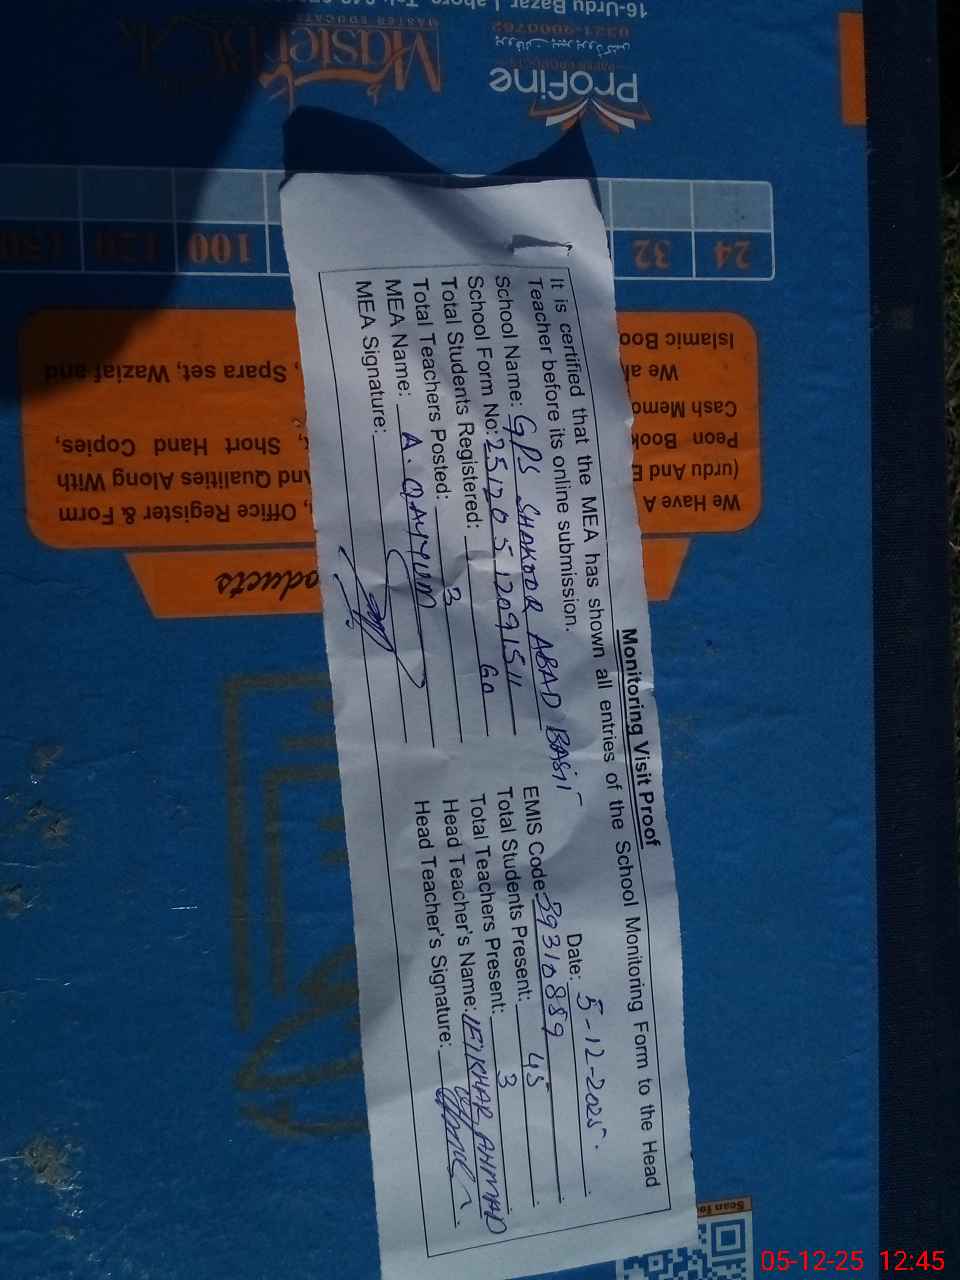 Monitoring Visit Proof
It is certified that the MEA has shown all entries of the School Monitoring Form to the Head
Teacher before its online submission.
Date: 5-12-2025.
School Name: GPS SHAKOOR ABAD BASTI
EMIS Code:
School Form No:
Total Students Present: 45
Total Students Registered: 60
Total Teachers Present: 3
Total Teachers Posted: 3
Head Teacher's Name: IFTIKHAR AHMAD
MEA Name: A. QAYYUM
Head Teacher's Signature:
MEA Signature:
16-Urdu Bazar Lahore
MasterBook
MASTER EDUCATE
ProFine
PAPER PRODUCTS
24
32
100
120
150
We Have A
Office Register & Form
(urdu And
And Qualities Along With
Peon Book
Short Hand Copies,
Cash Memo
We
Spara set, Waziaf and
Islamic
Scan
05-12-25 12:45